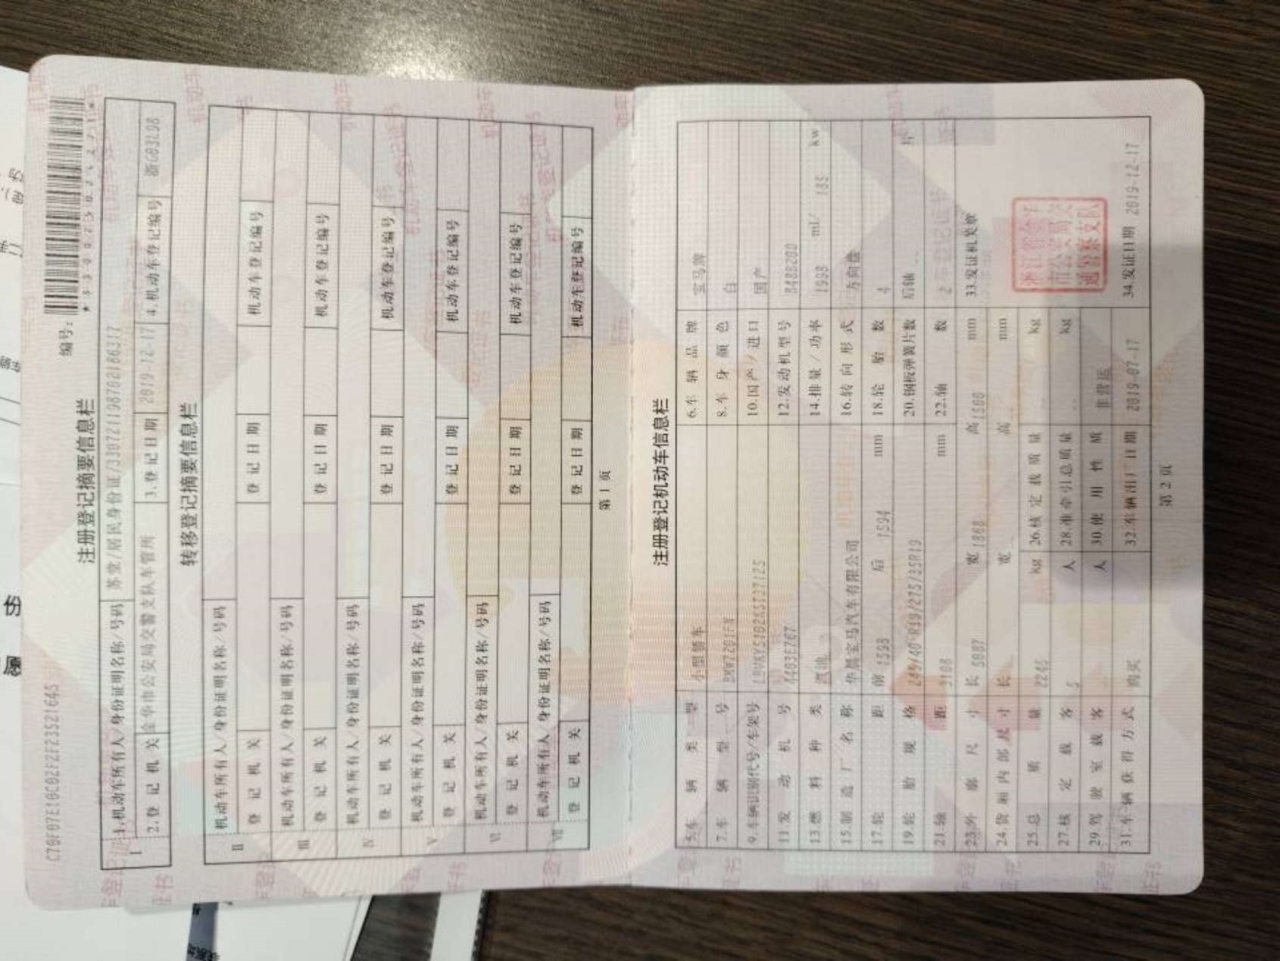 编号:
注册登记摘要信息栏
I
1.机动车所有人/身份证明名称/号码 苏堂/居民身份证/330721198702186317
2.登记机关 金华市公安局交警支队车管所 3.登记日期 2019-12-17 4.机动车登记编号 浙G03L98
转移登记摘要信息栏
II 机动车所有人/身份证明名称/号码
登记机关 登记日期 机动车登记编号
III 机动车所有人/身份证明名称/号码
登记机关 登记日期 机动车登记编号
IV 机动车所有人/身份证明名称/号码
登记机关 登记日期 机动车登记编号
V 机动车所有人/身份证明名称/号码
登记机关 登记日期 机动车登记编号
VI 机动车所有人/身份证明名称/号码
登记机关 登记日期 机动车登记编号
VII 机动车所有人/身份证明名称/号码
登记机关 登记日期 机动车登记编号
第 1 页
注册登记机动车信息栏
5.车辆类型 小型轿车 6.车辆品牌 宝马牌
7.车辆型号 8.车身颜色 白
9.车辆识别代号/车架号 10.国产/进口 国产
11.发动机号 12.发动机型号 B48B20D
13.燃料种类 汽油 14.排量/功率 1998 ml/ 185 kw
15.制造厂名称 华晨宝马汽车有限公司 16.转向形式 方向盘
17.轮距 前 1598 后 1594 mm 18.轮胎数 4
19.轮胎规格 245/40 R19/275/35R19 20.钢板弹簧片数 后轴 片
21.轴距 3108 mm 22.轴数 2
23.外廓尺寸 长 5087 宽 1868 高 1500 mm 33.发证机关章
24.货厢内部尺寸 长 宽 高 mm
25.总质量 2245 kg 26.核定载质量 kg
27.核定载客 5 人 28.准牵引总质量 kg
29.驾驶室载客 人 30.使用性质 非营运
31.车辆获得方式 购买 32.车辆出厂日期 2019-07-17 34.发证日期 2019-12-17
第 2 页
份
愿